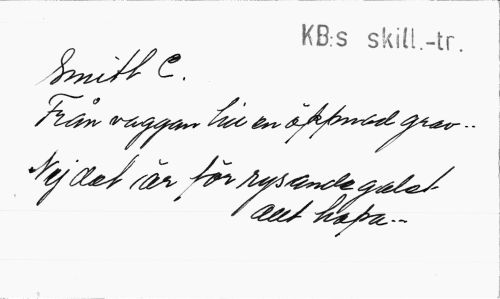 KB:s skill.-tr.
Smith C.
Från vaggan till en öppnad grav..
Nej det är för rysande galet
allt hopa..